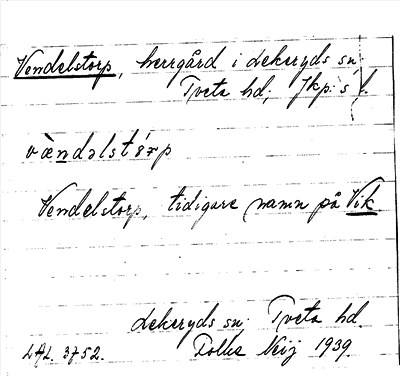 Vendelstorp, herrgård i Lekeryds sn.
Tveta hd; Jkp:s l.
væ̀ndəlstɔ́rp
Vendelstorp, tidigare namn på Vik
Lekeryds sn, Tveta hd.
LAL. 3752. Folke Neij 1939.